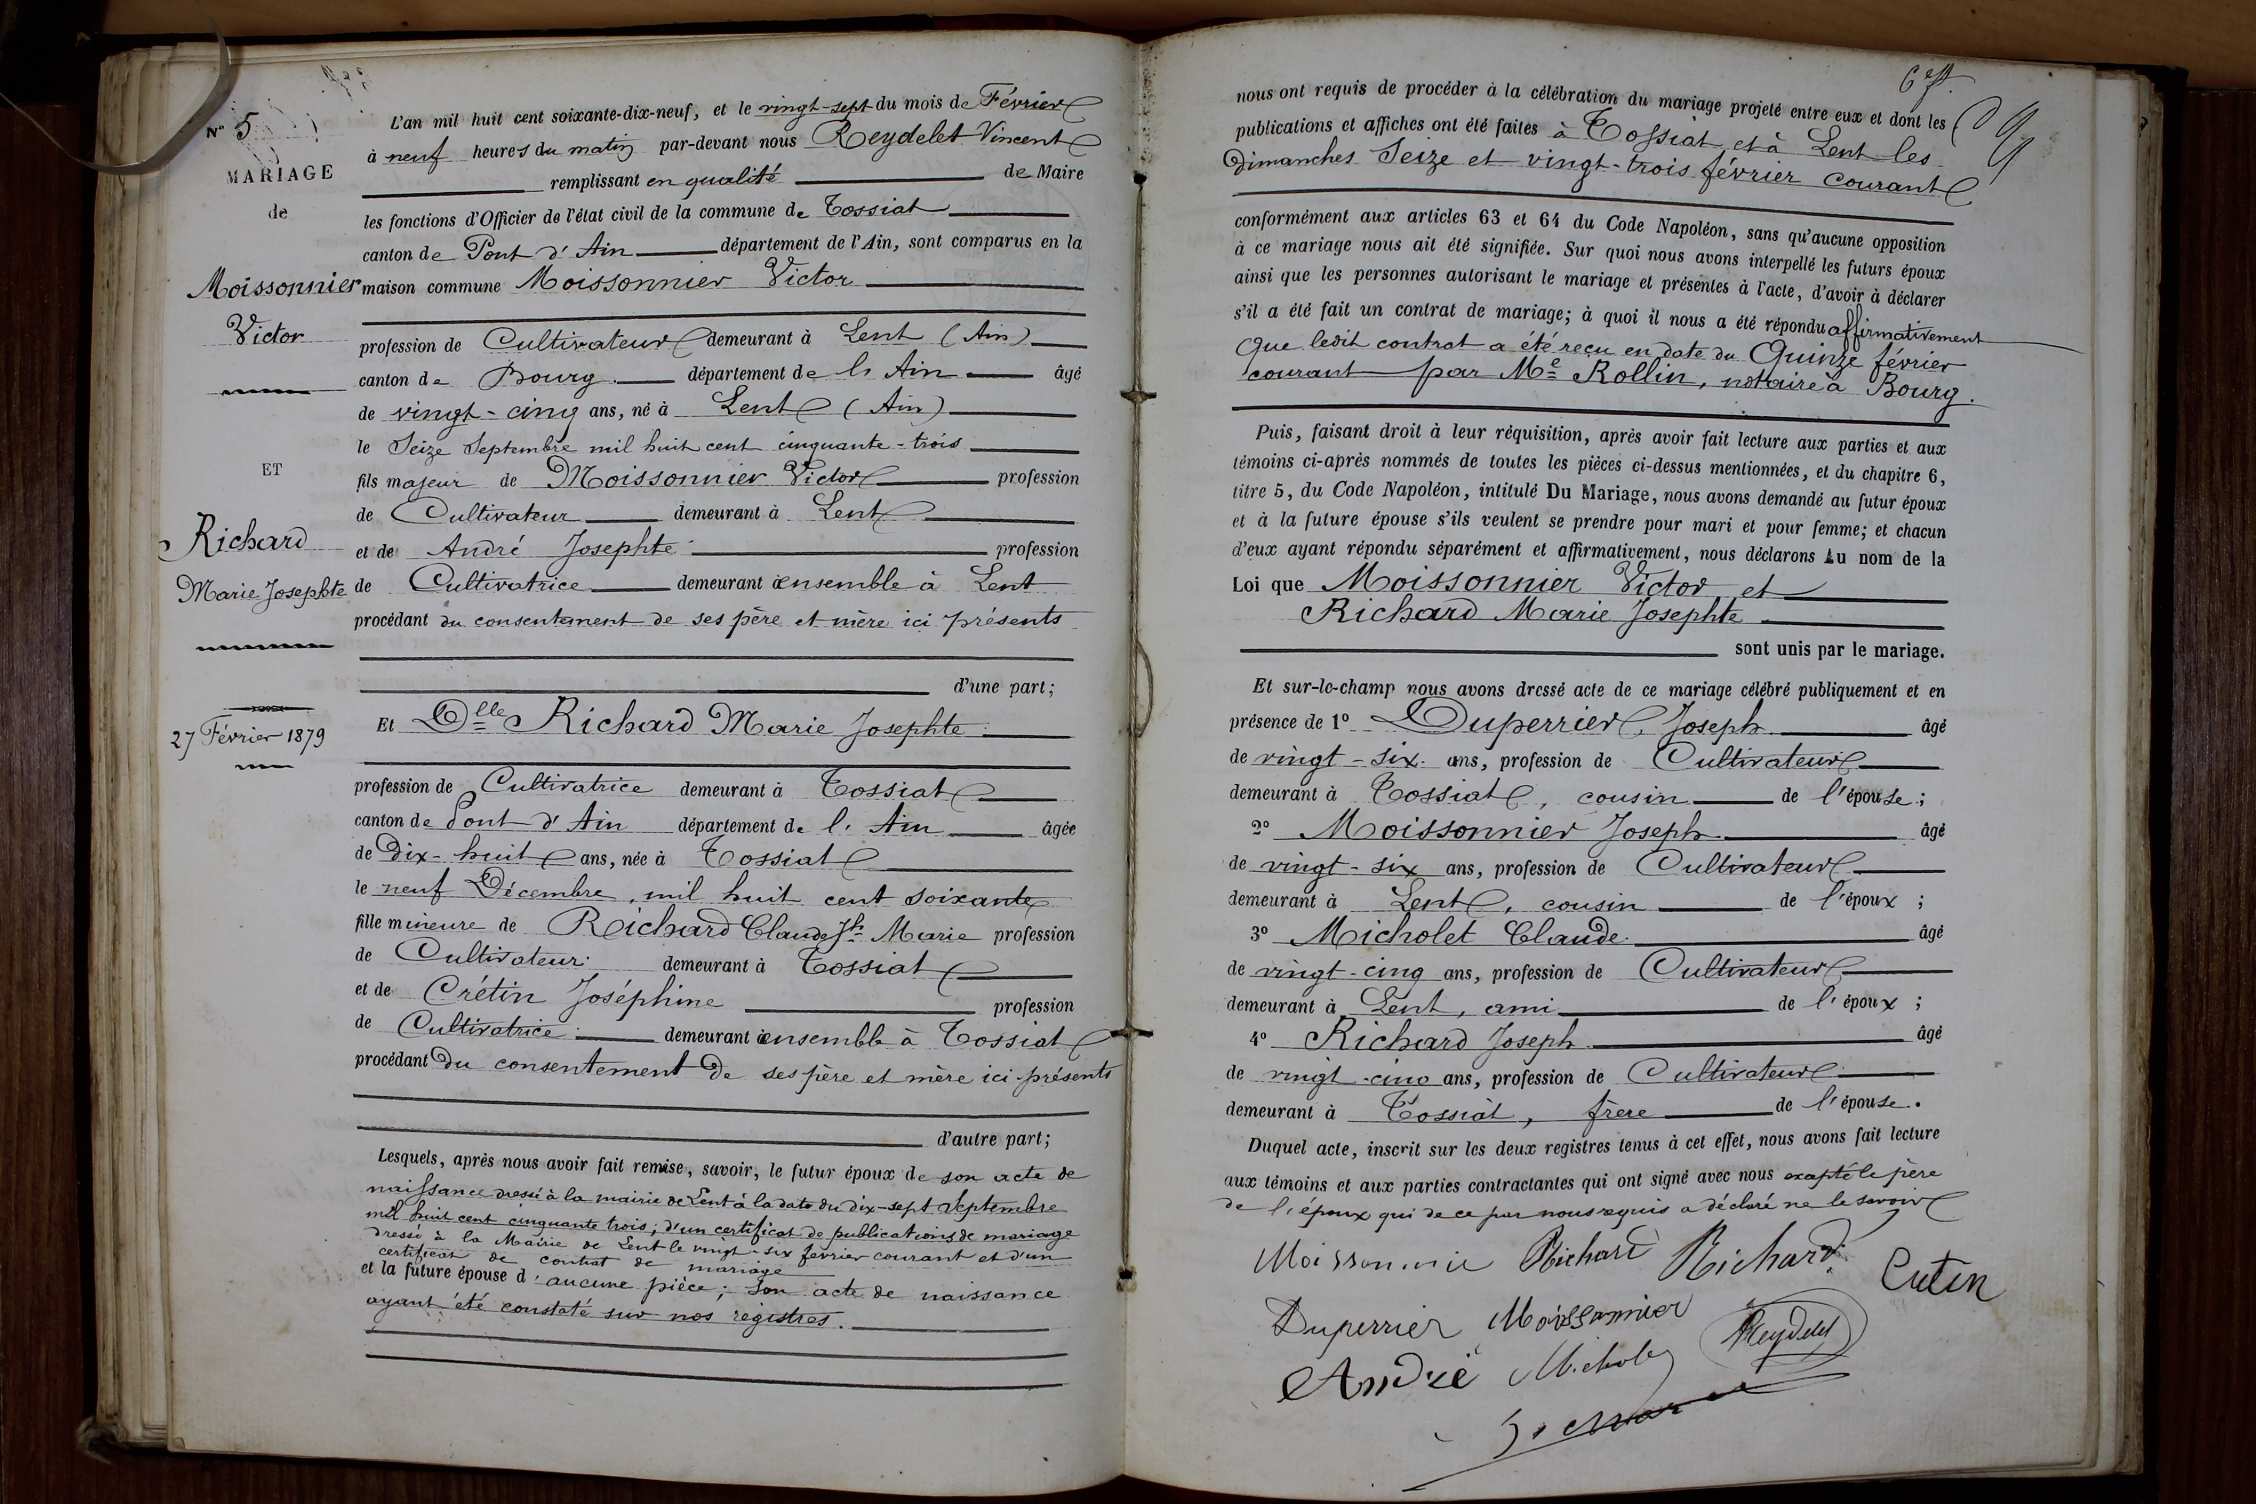 N° 5
MARIAGE
de
Moissonnier
Victor
ET
Richard
Marie Josephte
27 Février 1879
L'an mil huit cent soixante-dix-neuf, et le vingt-sept du mois de Février
à neuf heures du matin par-devant nous Reydelet Vincent
remplissant en qualité de Maire
les fonctions d'Officier de l'état civil de la commune de Tossiat
canton de Pont d'Ain département de l'Ain, sont comparus en la
maison commune Moissonnier Victor
profession de Cultivateur demeurant à Lent (Ain)
canton de Bourg département de l'Ain âgé
de vingt-cinq ans, né à Lent (Ain)
le Seize Septembre mil huit cent cinquante-trois
fils majeur de Moissonnier Victor profession
de Cultivateur demeurant à Lent
et de André Josephte profession
de Cultivatrice demeurant à ensemble à Lent
procédant du consentement de ses père et mère ici présents
d'une part;
Et Dlle Richard Marie Josephte
profession de Cultivatrice demeurant à Tossiat
canton de Pont d'Ain département de l'Ain âgée
de Dix-huit ans, née à Tossiat
le neuf Décembre, mil huit cent soixante
fille mineure de Richard Claude Jh Marie profession
de Cultivateur demeurant à Tossiat
et de Crétin Joséphine profession
de Cultivatrice demeurant à ensemble à Tossiat
procédant du consentement de ses père et mère ici présents
d'autre part;
Lesquels, après nous avoir fait remise, savoir, le futur époux de son acte de
naissance dressé à la mairie de Lent à la date du dix-sept Septembre
mil huit cent cinquante trois; d'un certificat de publications de mariage
dressé à la Mairie de Lent le vingt-six février courant et d'un
certificat de contrat de mariage
et la future épouse d'aucune pièce; son acte de naissance
ayant été constaté sur nos registres.
nous ont requis de procéder à la célébration du mariage projeté entre eux et dont les
publications et affiches ont été faites à Tossiat et à Lent les
dimanches Seize et vingt-trois février courant
conformément aux articles 63 et 64 du Code Napoléon, sans qu'aucune opposition
à ce mariage nous ait été signifiée. Sur quoi nous avons interpellé les futurs époux
ainsi que les personnes autorisant le mariage et présentes à l'acte, d'avoir à déclarer
s'il a été fait un contrat de mariage; à quoi il nous a été répondu affirmativement
Que ledit contrat a été reçu en date du Quinze février
courant par Me Rollin, notaire à Bourg.
Puis, faisant droit à leur réquisition, après avoir fait lecture aux parties et aux
témoins ci-après nommés de toutes les pièces ci-dessus mentionnées, et du chapitre 6,
titre 5, du Code Napoléon, intitulé Du Mariage, nous avons demandé au futur époux
et à la future épouse s'ils veulent se prendre pour mari et pour femme; et chacun
d'eux ayant répondu séparément et affirmativement, nous déclarons Au nom de la
Loi que Moissonnier Victor et
Richard Marie Josephte
sont unis par le mariage.
Et sur-le-champ nous avons dressé acte de ce mariage célébré publiquement et en
présence de 1° Duperrier, Joseph âgé
de vingt-six ans, profession de Cultivateur
demeurant à Tossiat, cousin de l'épouse;
2° Moissonnier Joseph âgé
de vingt-six ans, profession de Cultivateur
demeurant à Lent, cousin de l'époux;
3° Micholet Claude âgé
de vingt-cinq ans, profession de Cultivateur
demeurant à Lent, ami de l'époux;
4° Richard Joseph âgé
de vingt-cinq ans, profession de Cultivateur
demeurant à Tossiat, frère de l'épouse.
Duquel acte, inscrit sur les deux registres tenus à cet effet, nous avons fait lecture
aux témoins et aux parties contractantes qui ont signé avec nous excepté le père
de l'époux qui de ce par nous requis a déclaré ne le savoir
Moissonnie Richard Richard
Cretin
Duperrier Moissonnier Reydelet
André Micholet